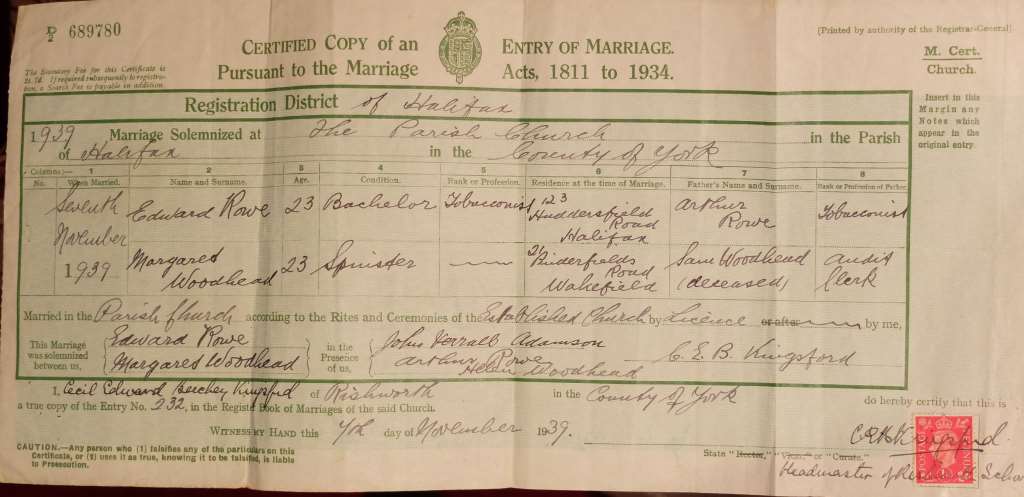 D/2 689780
[Printed by authority of the Registrar-General]
CERTIFIED COPY OF AN ENTRY OF MARRIAGE.
PURSUANT TO THE MARRIAGE ACTS, 1811 TO 1934.
M. Cert.
Church.
The Statutory Fee for this Certificate is
2s. 7d. If required subsequently to registra-
tion, a Search Fee is payable in addition.
Insert in this
Margin any
Notes which
appear in the
original entry.
Registration District of Halifax
1939 Marriage Solemnized at The Parish Church in the Parish
of Halifax in the County of York
Columns:— 1 2 3 4 5 6 7 8
No. When Married. Name and Surname. Age. Condition. Rank or Profession. Residence at the time of Marriage. Father's Name and Surname. Rank or Profession of Father.
Seventh November 1939
Edward Rowe 23 Bachelor Tobacconist 123 Huddersfield Road Halifax Arthur Rowe Tobacconist
Margaret Woodhead 23 Spinster — 21 Pinderfields Road Wakefield Sam Woodhead (deceased) Audit Clerk
Married in the Parish Church according to the Rites and Ceremonies of the Established Church by Licence or after — by me,
This Marriage
was solemnized
between us,
Edward Rowe
Margaret Woodhead
in the
Presence
of us,
John Verrall Adamson
Arthur Rowe
Helen Woodhead
C. E. B. Kingsford
I, Cecil Edward Beechey Kingsford of Rishworth in the County of York do hereby certify that this is
a true copy of the Entry No. 232, in the Register Book of Marriages of the said Church.
WITNESS MY HAND this 7th day of November 1939.
CAUTION.—Any person who (1) falsifies any of the particulars on this
Certificate, or (2) uses it as true, knowing it to be falsified, is liable
to Prosecution.
C.E.B. Kingsford.
State "Rector," "Vicar," or "Curate."
Headmaster of